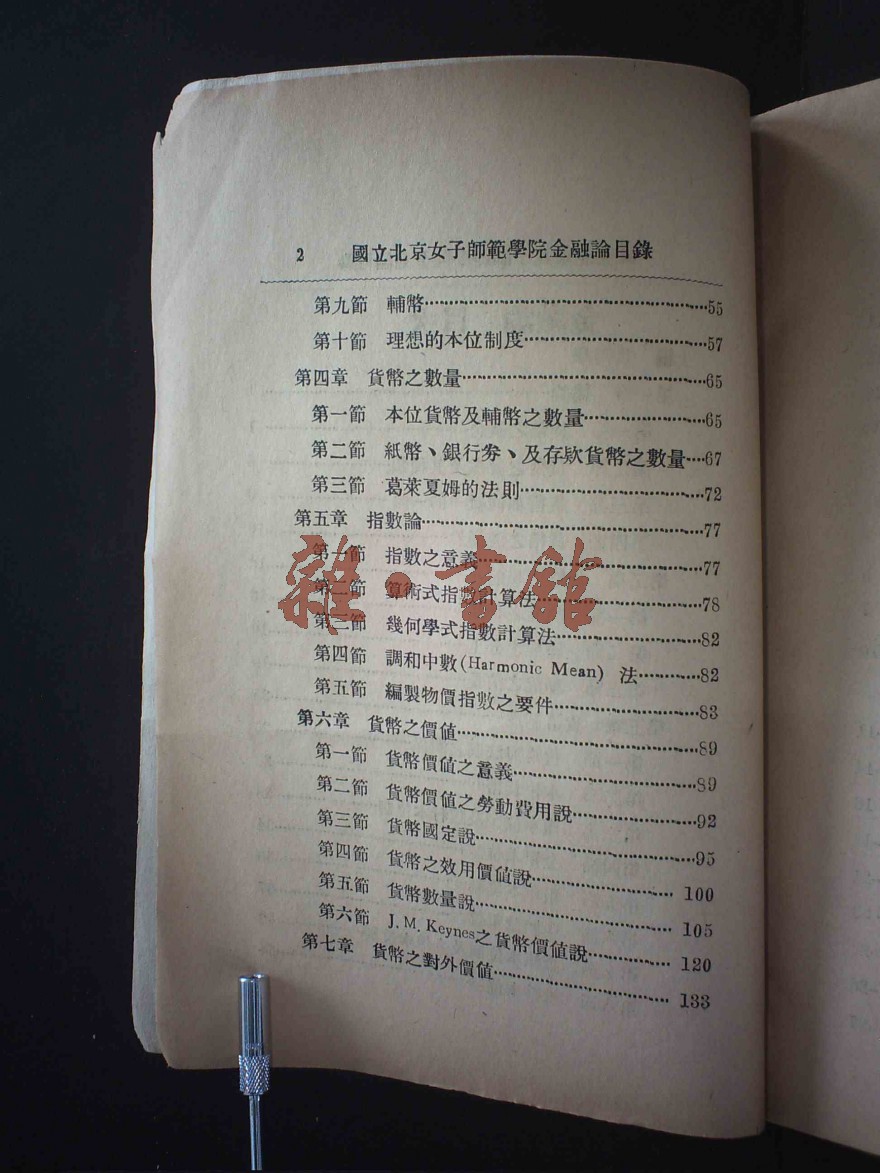 2 國立北京女子師範學院金融論目錄
第九節 輔幣…………55
第十節 理想的本位制度…………57
第四章 貨幣之數量…………65
第一節 本位貨幣及輔幣之數量…………65
第二節 紙幣、銀行券、及存欵貨幣之數量…67
第三節 葛萊夏姆的法則…………72
第五章 指數論…………77
第一節 指數之意義…………77
第二節 算術式指數計算法…………78
第三節 幾何學式指數計算法…………82
第四節 調和中數(Harmonic Mean) 法…………82
第五節 編製物價指數之要件…………83
第六章 貨幣之價値…………89
第一節 貨幣價値之意義…………89
第二節 貨幣價値之勞動費用說…………92
第三節 貨幣國定說…………95
第四節 貨幣之效用價値說…………100
第五節 貨幣數量說…………105
第六節 J. M. Keynes之貨幣價値說…………120
第七章 貨幣之對外價値…………133
雜·書館